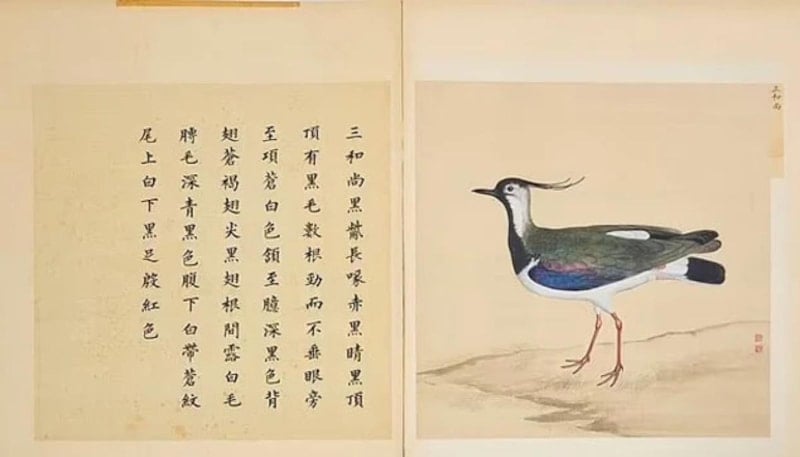 三和尚
三和尚黑觜長喙赤黑睛黑頂
頂有黑毛數根勁而不垂眼旁
至項蒼白色頷至臆深黑色背
翅蒼褐翅尖黑翅根間露白毛
膊毛深青黑色腹下白帶蒼紋
尾上白下黑足殷紅色